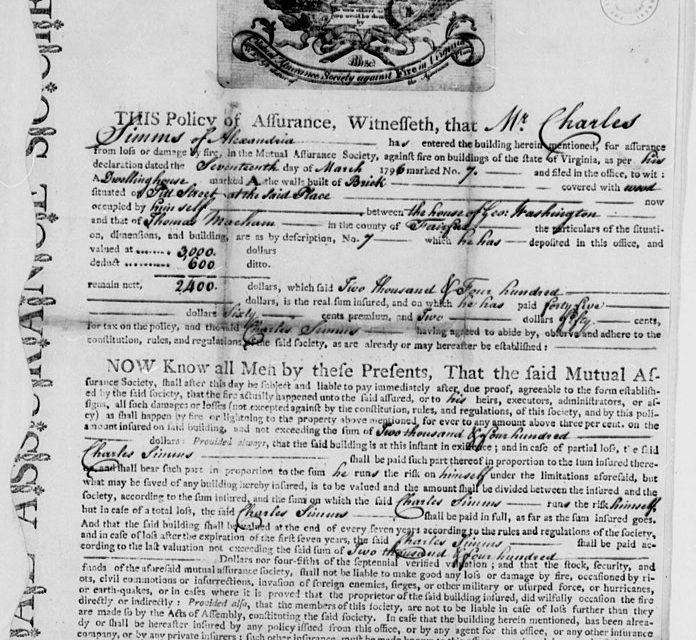 Mutual Assurance Society against Fire in Virginia
THIS Policy of Assurance, Witnesseth, that Mr. Charles
Simms of Alexandria has entered the building herein mentioned, for assurance
from loss or damage by fire, in the Mutual Assurance Society, against fire on buildings of the state of Virginia, as per his
declaration dated the Seventeenth day of March 1796 marked No. 7. and filed in the office, to wit:
A Dwelling house, marked A the walls built of Brick covered with wood
situated of Pitt Street, at the said Place now
occupied by himself between the house of Geo: Washington
and that of Thomas in the county of Fairfax the particulars of the situati-
on, dimensions, and building, are as by description, No. 7 which he has deposited in this office, and
valued at ........ 3,000. dollars
deduct ........ 600 ditto.
remain nett, 2,400 dollars, which said Two thousand & Four hundred
dollars, is the real sum insured, and on which he has paid forty five
dollars Sixty cents premium, and Two dollars fifty cents,
for tax on the policy, and the said Charles Simms having agreed to abide by, observe and adhere to the
constitution, rules, and regulations of the said society, as are already or may hereafter be established:
NOW Know all Men by these Presents, That the said Mutual As-
surance Society, shall after this day be subject and liable to pay immediately after, due proof, agreeable to the form establish-
ed by the said society, that the fire actually happened unto the said assured, or to his heirs, executors, administrators, or as-
signs, all such damages or losses (not excepted against by the constitution, rules, and regulations, of this society, and by this poli-
cy) as shall happen by fire or lightning to the property above mentioned, for ever to any amount above three per cent. on the
amount insured on said building, and not exceeding the sum of Two thousand & four hundred
dollars: Provided always, that the said building is at this instant in existence; and in case of partial loss, the said
Charles Simms shall be paid such part thereof in proportion to the sum insured there-
on, and shall bear such part in proportion to the sum he runs the risk on himself under the limitations aforesaid, but
what may be saved of any building hereby insured, is to be valued and the amount shall be divided between the insured and the
society, according to the sum insured, and the sum on which the said Charles Simms runs the risk himself,
but in case of a total loss, the said Charles Simms shall be paid in full, as far as the sum insured goes.
And that the said building shall be valued at the end of every seven years according to the rules and regulations of the society,
and in case of loss after the expiration of the first seven years, the said Charles Simms shall be paid ac-
cording to the last valuation not exceeding the said sum of Two thousand & four hundred
Dollars nor four-fifths of the septennial verified valuation; and that the stock, security, and
funds of the aforesaid mutual assurance society, shall not be liable to make good any loss or damage by fire, occasioned by ri-
ots, civil commotions or insurrections, invasion of foreign enemies, sieges, or other military or usurped force, or hurricanes,
or earth-quakes, or in cases where it is proved that the proprietor of the said building insured, did wilfully occasion the fire
directly or indirectly: Provided also, that the members of this society, are not to be liable in case of loss further than they
are made so by the Acts of Assembly, constituting the said society. In case that the building herein mentioned, has been alrea-
dy or shall be hereafter insured by any policy issued from this office, or by any agent for this office, or any other insurance
company, or by any private insurers; such other insurance, must be made known